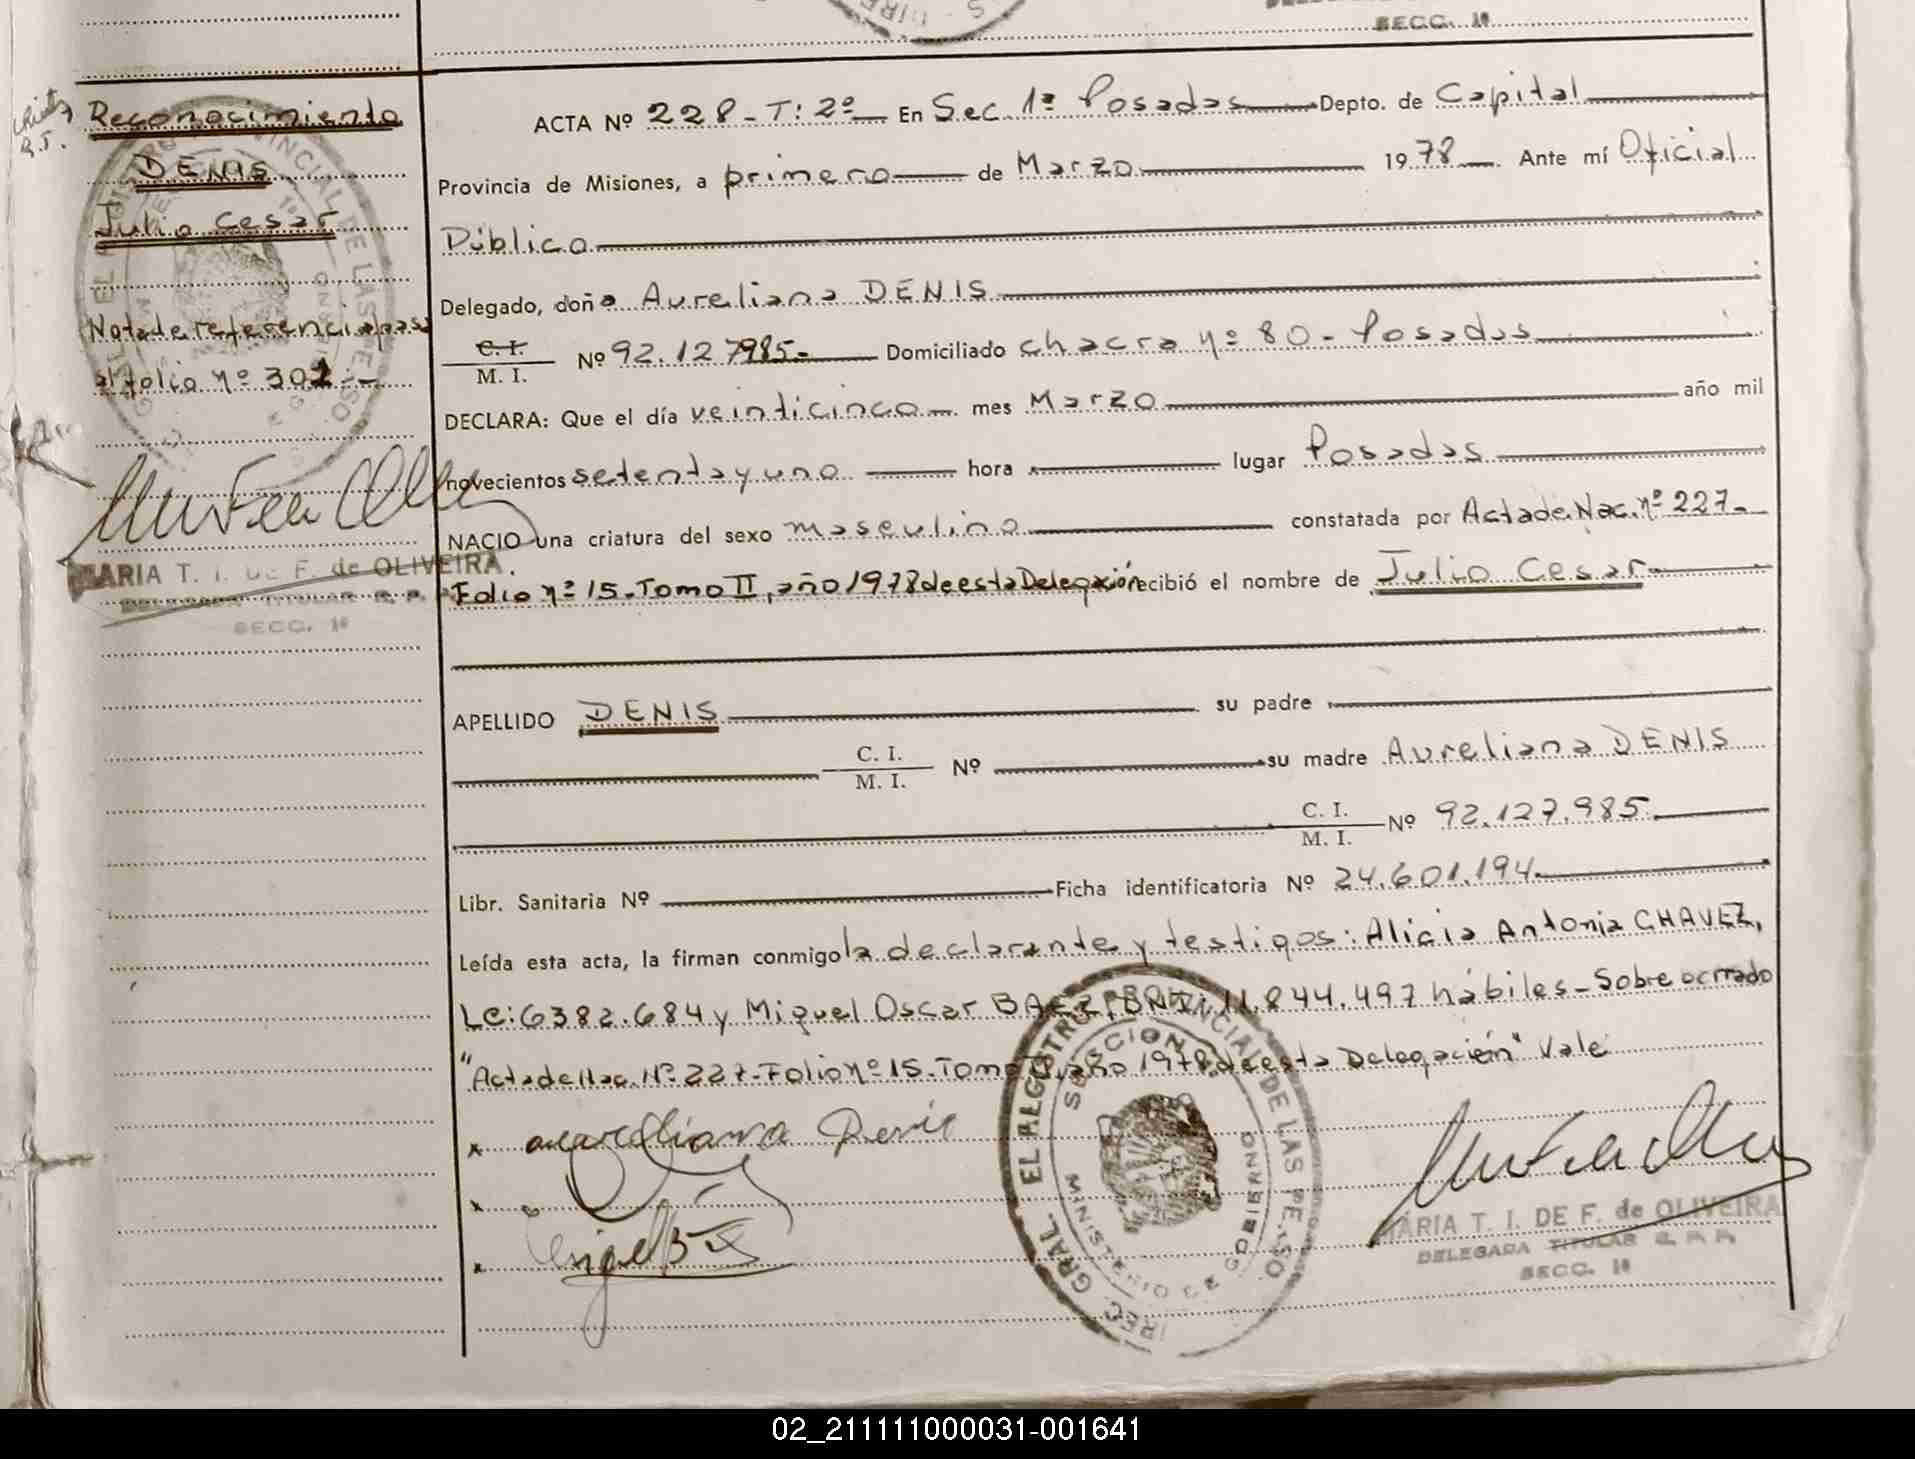 SECC. 1ª
Reconocimiento
DENIS
Julio Cesar
Nota de referencia pasa
al folio nº 301.-
MARIA T. I. DE F. de OLIVEIRA
DELEGADA TITULAR R. P. P.
SECC. 1ª
ACTA Nº 228 - T: 2º En Sec. 1ª Posadas Depto. de Capital
Provincia de Misiones, a primero de Marzo 1978. Ante mí Oficial
Público
Delegado, doña Aureliana DENIS
C. I.
M. I. Nº 92.127985.- Domiciliado chacra nº 80 - Posadas
DECLARA: Que el día veinticinco mes Marzo año mil
novecientos setenta y uno hora lugar Posadas
NACIO una criatura del sexo masculino constatada por Acta de Nac. nº 227-
Folio nº 15. Tomo II, año 1978 de esta Delegación recibió el nombre de Julio Cesar
APELLIDO DENIS su padre
C. I.
M. I. Nº su madre Aureliana DENIS
C. I.
M. I. Nº 92.127.985.
Libr. Sanitaria Nº Ficha identificatoria Nº 24.601.194.
Leída esta acta, la firman conmigo la declarante y testigos: Alicia Antonia CHAVEZ,
LC: 6382.684 y Miguel Oscar BAEZ, DNI: 11.844.497 hábiles - Sobre ocrrado
"Acta de Nac. Nº 227 - Folio nº 15. Tomo II, año 1978 de esta Delegación" Vale
x aureliana Denis
x
x
REC. GRAL. EL REGISTRO PROVINCIAL DE LAS PERSO
SECCION 1ª
MINISTERIO DE GOBIERNO
MARIA T. I. DE F. de OLIVEIRA
DELEGADA TITULAR R. P. P.
SECC. 1ª
02_211111000031-001641